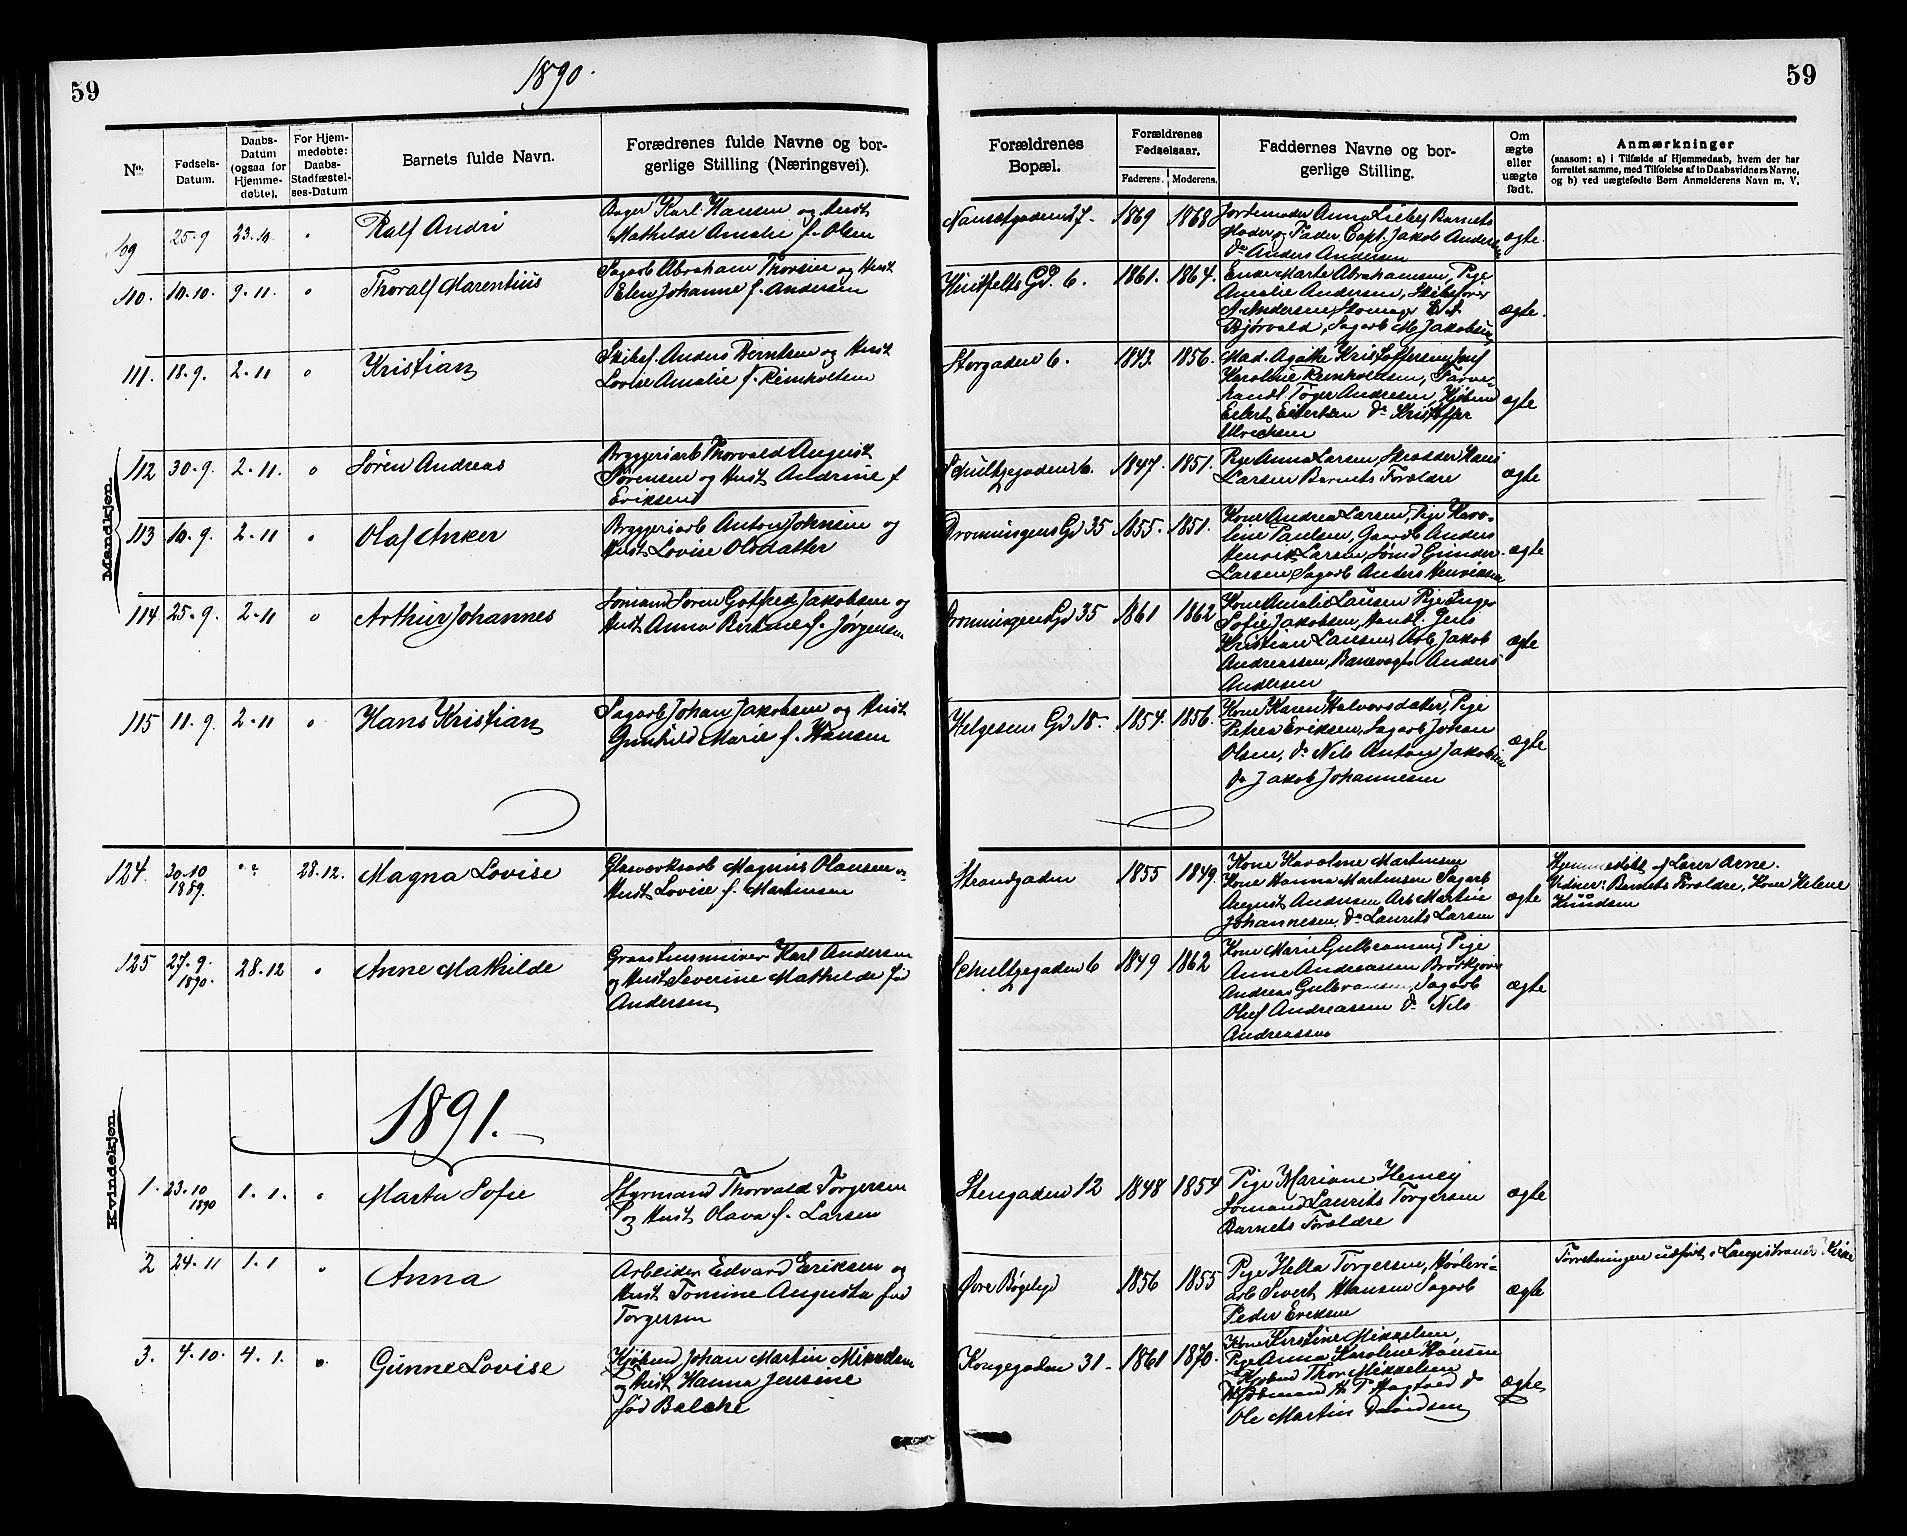 59
1890.
59
No.
Fødsels-Datum.
Daabs-Datum (ogsaa for Hjemme-døbte).
For Hjem-medøbte: Daabs-Stadfæstel-ses-Datum
Barnets fulde Navn.
Forædrenes fulde Navne og bor-
gerlige Stilling (Næringsvei).
Forældrenes
Bopæl.
Forældrenes
Fødselsaar.
Faderens.
Moderens.
Faddernes Navne og bor-
gerlige Stilling.
Om ægte eller uægte født.
Anmærkninger
(saasom: a) i Tilfælde af Hjemmedaab, hvem der har
forrettet samme, med Tilføielse af to Daabsvidners Navne,
og b) ved uægtefødte Børn Anmelderens Navn m. V.
Mandkjøn.
109 25-9 Ralf Andri
Bager Karl Hansen og Hust
Mathilde Amalie f. Olsen
Nansetgaden 27. 1869 1868
Jordemoder Anna Barnets
Moder og Fader, Capt. Jakob Andersen
Do Anders Andersen
ægte.
110. 10-10. 9-11. " Thoralf Marentius
Sagarb Abraham Thorsen og Hust
Elen Johanne f. Andersen
Gd. 6. 1861. 1864.
Enke Marte Abrahamsen, Pige
Amalie Andersen,
A. Andersen,
Bjørvald, Sagarb M. Jakobsen
ægte.
111. 18-9. 2-11 " Kristian
Skibsf. Anders Berntsen og Hust
Lovise Amalie f. Reinholtsen
Storgaden 6. 1843. 1856.
Mad. Agathe Kristoffersen, Jmf
Karoline Reinholdsen, Farve-
handl. Tøger Andresen,
Eilert Eilertsen Do Kristoffer
Ulrichsen
ægte
112 30-9. 2-11. " Søren Andreas
Bryggeriarb Thorvald August
Sørensen og Hust Andrine f
Eriksen
Schultzegaden 6. 1847. 1851.
Pige Anna Larsen, Skræder Hans
Larsen Barnets Forældre
ægte
113 10-9. 2-11 " Olaf Anker
Bryggeriarb Anton Johnsen og
Hust Lovise Olsdatter
Dronningens Gd 35 1855. 1851.
Kone Andrea Larsen, Pige Karo-
line Paulsen, Gaardb Anders
Henrik Larsen, Sømd Gunder
Larsen, Sagarb Anders Henriksen
ægte
114 25-9. 2-11 " Arthur Johannes
Sømand Søren Gotfred Jakobsen og
Hust Anna f. Jørgensen
Dronningens Gd 35 1861 1862
Kone Amalie Lausen Pige Inger
Sofie Jakobsen, Handl. Jens
Kristian Lausen, Arb. Jakob
Andreassen, Banevogter Anders
Andersen
ægte
115 11-9. 2-11 " Hans Kristian
Sagarb Johan Jakobsen og Hust
Gunhild Marie f. Hansen
Helgesens Gd 18. 1854. 1856.
Kone Karen Halvorsdatter, Pige
Petrea Eriksen, Sagarb Johan
Olsen, Do Nils Anton Jakobsen
Do Jakob Johannesen
ægte
124. 30-10 1889. " " 28.12. Magna Lovise
Glasværksarb Magnus Olausen og
Hust Lovise f. Martinsen
Strandgaden 1855 1849.
Kone Karoline Martinsen
Kone Hanna Martinsen Sagarb
August Andersen Arb Martin
Johannesen, Do Laurits Larsen
ægte
Hjemmedøbt af Lærer Arne.
Vidner: Barnets Forældre, Kone Helene
Knudsen
125 27-9. 1890. 28-12 " Anne Mathilde
Graastensmurer Karl Andersen
og Hust Severine Mathilde fød
Andersen
Schultzegaden 6 1849 1862
Kone Marie Gulbransen, Pige
Anne Andreassen
Andreas Gulbransen, Sagarb
Oluf Andreassen Do Nils
Andreassen
ægte
1891.
Kvindekjøn.
1. 23-10 1890 1-1. " Marta Sofie
Styrmand Thorvald Torgersen
og Hust Olava f. Larsen
Stengaden 12 1848 1854
Pige Mariane
Sømand Laurits Torgersen
Barnets Forældre
ægte
2 24-11 1-1 " Anna
Arbeider Edvard Eriksen og
Hust Tomine Augusta fød
Torgersen
Øvre Bøgelygd 1856 1855
Pige Hella Torgersen, Høvleri-
arb Sivert Hansen Sagarb
Peder Eriksen
ægte
Forretningen udført i Langestrands Kirke
3. 4-10. 4-1. " Gunne Lovise
Johan Martin Mikkelsen
og Hust Hanna Jensine
fød Balche
Kongegaden 31. 1861 1870.
Kone Kirstine Mikkelsen,
Pige Anna Karoline Hansen
Thor Mikkelsen
Ole Martin Davidsen
ægte